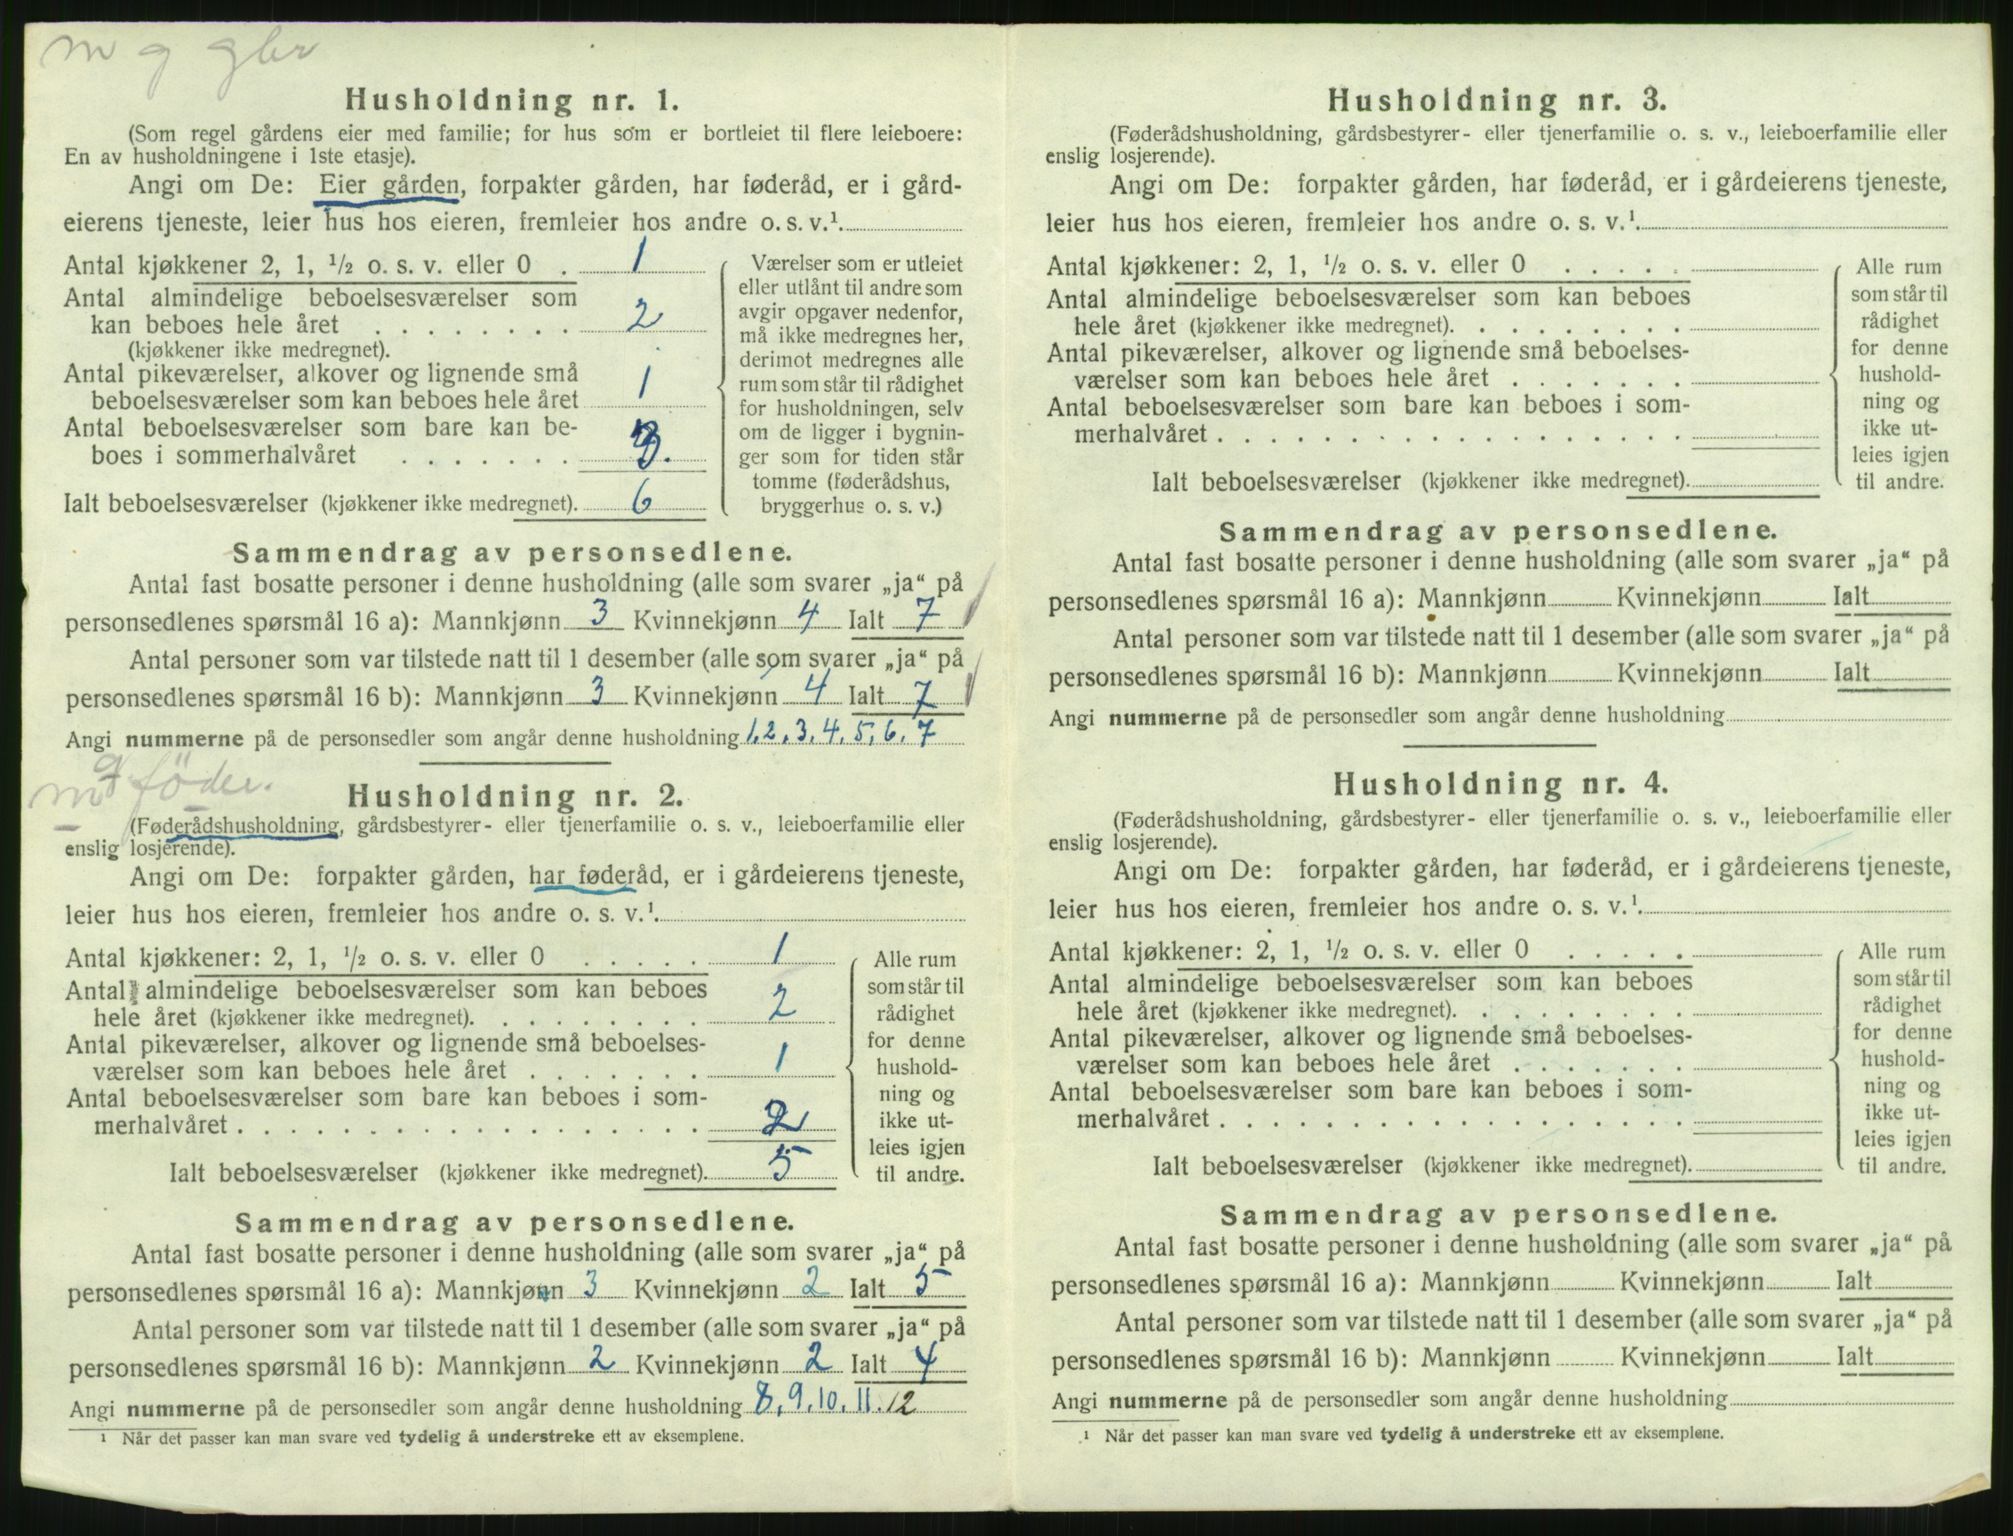 m g gbr
Husholdning nr. 1.
(Som regel gårdens eier med familie; for hus som er bortleiet til flere leieboere:
En av husholdningene i 1ste etasje).
Angi om De: Eier gården, forpakter gården, har føderåd, er i gård-
eierens tjeneste, leier hus hos eieren, fremleier hos andre o. s. v.¹
Antal kjøkkener 2, 1, ½ o. s. v. eller 0 . 1
Antal almindelige beboelsesværelser som
kan beboes hele året . . . . . . . . 2
(kjøkkener ikke medregnet).
Antal pikeværelser, alkover og lignende små
beboelsesværelser som kan beboes hele året 1
Antal beboelsesværelser som bare kan be-
boes i sommerhalvåret . . . . . . . 3.
Ialt beboelsesværelser (kjøkkener ikke medregnet). 6
Værelser som er utleiet
eller utlånt til andre som
avgir opgaver nedenfor,
må ikke medregnes her,
derimot medregnes alle
rum som står til rådighet
for husholdningen, selv
om de ligger i bygnin-
ger som for tiden står
tomme (føderådshus,
bryggerhus o. s. v.)
Sammendrag av personsedlene.
Antal fast bosatte personer i denne husholdning (alle som svarer „ja“ på
personsedlenes spørsmål 16 a): Mannkjønn 3 Kvinnekjønn 4 Ialt 7
Antal personer som var tilstede natt til 1 desember (alle som svarer „ja“ på
personsedlenes spørsmål 16 b): Mannkjønn 3 Kvinnekjønn 4 Ialt 7
Angi nummerne på de personsedler som angår denne husholdning 1, 2, 3, 4, 5, 6, 7
m g føder.
Husholdning nr. 2.
(Føderådshusholdning, gårdsbestyrer- eller tjenerfamilie o. s. v., leieboerfamilie eller
enslig losjerende).
Angi om De: forpakter gården, har føderåd, er i gårdeierens tjeneste,
leier hus hos eieren, fremleier hos andre o. s. v.¹
Antal kjøkkener: 2, 1, ½ o. s. v. eller 0 . . . . . 1
Antal almindelige beboelsesværelser som kan beboes
hele året (kjøkkener ikke medregnet). . . . . . . . . 2
Antal pikeværelser, alkover og lignende små beboelses-
værelser som kan beboes hele året . . . . . . . 1
Antal beboelsesværelser som bare kan beboes i som-
merhalvåret . . . . . . . . . . . . . . . . . . 2
Ialt beboelsesværelser (kjøkkener ikke medregnet). 5
Alle rum
som står til
rådighet
for denne
hushold-
ning og
ikke ut-
leies igjen
til andre.
Sammendrag av personsedlene.
Antal fast bosatte personer i denne husholdning (alle som svarer „ja“ på
personsedlenes spørsmål 16 a): Mannkjønn 3 Kvinnekjønn 2 Ialt 5
Antal personer som var tilstede natt til 1 desember (alle som svarer „ja“ på
personsedlenes spørsmål 16 b): Mannkjønn 2 Kvinnekjønn 2 Ialt 4
Angi nummerne på de personsedler som angår denne husholdning 8, 9, 10, 11. 12
¹ Når det passer kan man svare ved tydelig å understreke ett av eksemplene.
Husholdning nr. 3.
(Føderådshusholdning, gårdsbestyrer- eller tjenerfamilie o. s. v., leieboerfamilie eller
enslig losjerende).
Angi om De: forpakter gården, har føderåd, er i gårdeierens tjeneste,
leier hus hos eieren, fremleier hos andre o. s. v.¹
Antal kjøkkener: 2, 1, ½ o. s. v. eller 0 . . . . .
Antal almindelige beboelsesværelser som kan beboes
hele året (kjøkkener ikke medregnet). . . . . . . . .
Antal pikeværelser, alkover og lignende små beboelses-
værelser som kan beboes hele året . . . . . . .
Antal beboelsesværelser som bare kan beboes i som-
merhalvåret . . . . . . . . . . . . . . . . . .
Ialt beboelsesværelser (kjøkkener ikke medregnet).
Alle rum
som står til
rådighet
for denne
hushold-
ning og
ikke ut-
leies igjen
til andre.
Sammendrag av personsedlene.
Antal fast bosatte personer i denne husholdning (alle som svarer „ja“ på
personsedlenes spørsmål 16 a): Mannkjønn Kvinnekjønn Ialt
Antal personer som var tilstede natt til 1 desember (alle som svarer „ja“ på
personsedlenes spørsmål 16 b): Mannkjønn Kvinnekjønn Ialt
Angi nummerne på de personsedler som angår denne husholdning
Husholdning nr. 4.
(Føderådshusholdning, gårdsbestyrer- eller tjenerfamilie o. s. v., leieboerfamilie eller
enslig losjerende).
Angi om De: forpakter gården, har føderåd, er i gårdeierens tjeneste,
leier hus hos eieren, fremleier hos andre o. s. v.¹
Antal kjøkkener: 2, 1, ½ o. s. v. eller 0 . . . . .
Antal almindelige beboelsesværelser som kan beboes
hele året (kjøkkener ikke medregnet). . . . . . . . .
Antal pikeværelser, alkover og lignende små beboelses-
værelser som kan beboes hele året . . . . . . .
Antal beboelsesværelser som bare kan beboes i som-
merhalvåret . . . . . . . . . . . . . . . . . .
Ialt beboelsesværelser (kjøkkener ikke medregnet).
Alle rum
som står til
rådighet
for denne
hushold-
ning og
ikke ut-
leies igjen
til andre.
Sammendrag av personsedlene.
Antal fast bosatte personer i denne husholdning (alle som svarer „ja“ på
personsedlenes spørsmål 16 a): Mannkjønn Kvinnekjønn Ialt
Antal personer som var tilstede natt til 1 desember (alle som svarer „ja“ på
personsedlenes spørsmål 16 b): Mannkjønn Kvinnekjønn Ialt
Angi nummerne på de personsedler som angår denne husholdning
¹ Når det passer kan man svare ved tydelig å understreke ett av eksemplene.